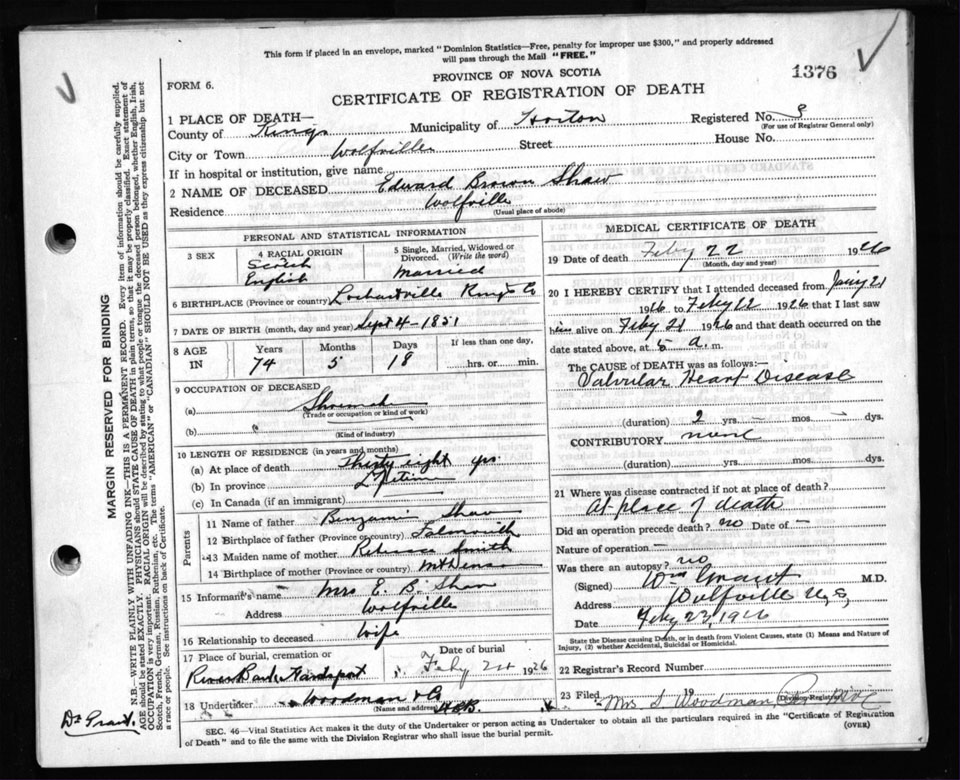 This form if placed in an envelope, marked "Dominion Statistics—Free, penalty for improper use $300," and properly addressed
will pass through the Mail "FREE."
1376
PROVINCE OF NOVA SCOTIA
FORM 6.
CERTIFICATE OF REGISTRATION OF DEATH
1 PLACE OF DEATH—
County of Kings Municipality of Horton Registered No. 8
(For use of Registrar General only)
City or Town Wolfville Street House No.
If in hospital or institution, give name
2 NAME OF DECEASED Edward Brown Shaw
Residence Wolfville
(Usual place of abode)
PERSONAL AND STATISTICAL INFORMATION
3 SEX
4 RACIAL ORIGIN
Scotch
English
5 Single, Married, Widowed or
Divorced. (Write the word)
Married
6 BIRTHPLACE (Province or country) Lockhartville Kings Co
7 DATE OF BIRTH (month, day and year) Sept 4-1851
8 AGE IN
Years Months Days If less than one day,
74 5 18 hrs. or min.
9 OCCUPATION OF DECEASED
(a)
(Trade or occupation or kind of work)
(b)
(Kind of industry)
10 LENGTH OF RESIDENCE (in years and months)
(a) At place of death Thirty eight yrs
(b) In province Lifetime
(c) In Canada (if an immigrant)
Parents
11 Name of father Benjamin Shaw
12 Birthplace of father (Province or country) Falmouth
13 Maiden name of mother Rebecca Smith
14 Birthplace of mother (Province or country)
15 Informant's name Mrs E. B. Shaw
Address Wolfville
16 Relationship to deceased Wife
17 Place of burial, cremation or Date of burial
River Bank Hantsport Feby 24 1926
18 Undertaker Woodman & Co
(Name and address)
MEDICAL CERTIFICATE OF DEATH
19 Date of death Feby 22 1926
(Month, day and year)
20 I HEREBY CERTIFY that I attended deceased from Jany 21
1926 to Feby 22 1926 that I last saw
him alive on Feby 21 1926 and that death occurred on the
date stated above, at 5 a. m.
The CAUSE OF DEATH was as follows:—
Valvular Heart Disease
(duration) 2 yrs — mos — dys.
CONTRIBUTORY none
(duration) yrs. mos. dys.
21 Where was disease contracted if not at place of death?
At place of death
Did an operation precede death? no Date of —
Nature of operation —
Was there an autopsy? no
(Signed) Wm Grant M.D.
Address Wolfville N.S.
Date Feby 23, 1926
State the Disease causing Death, or in death from Violent Causes, state (1) Means and Nature of
Injury, (2) whether Accidental, Suicidal or Homicidal.
22 Registrar's Record Number
23 Filed 19
Mrs S Woodman
Division Registrar
SEC. 46—Vital Statistics Act makes it the duty of the Undertaker or person acting as Undertaker to obtain all the particulars required in the "Certificate of Registration
of Death" and to file the same with the Division Registrar who shall issue the burial permit.
(OVER)
MARGIN RESERVED FOR BINDING
N.B.—WRITE PLAINLY WITH UNFADING INK—THIS IS A PERMANENT RECORD. Every item of information should be carefully supplied.
AGE should be stated EXACTLY. PHYSICIANS should STATE CAUSE OF DEATH in plain terms, so that it may be properly classified. Exact statement of
OCCUPATION is very important. RACIAL ORIGIN will be described by stating to what people or tongue the deceased person belonged, whether English, Irish,
Scotch, French, German, Russian, Ruthenian, etc. The terms "AMERICAN" or "CANADIAN" SHOULD NOT BE USED as they express citizenship but not
a race or people. See instructions on back of Certificate.
Dr Grant.